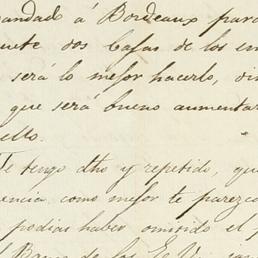 andado á Bordeaux para
uete dos Cajas de los en
será lo mejor hacerlo, di
que será bueno aumentar
ello.
Te tengo dho y repetido, que
encia como mejor te parezca
podias haber omitido el p
Banco de los E. U.